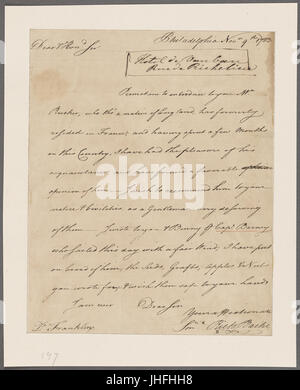 Philadelphia Nov. 9th 1783
Dear & Hond. Sir
Hotel de
Rue de Richelieu
Permit me to introduce to you Mr.
who tho' a native of England, has formerly
resided in France, and having spent a few Months
in this Country, I have had the pleasure of his
acquaintance and
opinion of him. I
notice & Civilities as a Gentleman very deserving
of them. I wrote to you & Benny Capt. Barney
who sailed this day with a fair Wind, I have put
on board of him, the Seeds, Grafts, Apples & Nuts
you wrote for, & wish them safe to your hands
I am ever Dear Sir
Your Affectionate
Son Richd. Bache
Dr. Franklin
147
alamy
Image ID: J1FHH8
www.alamy.com